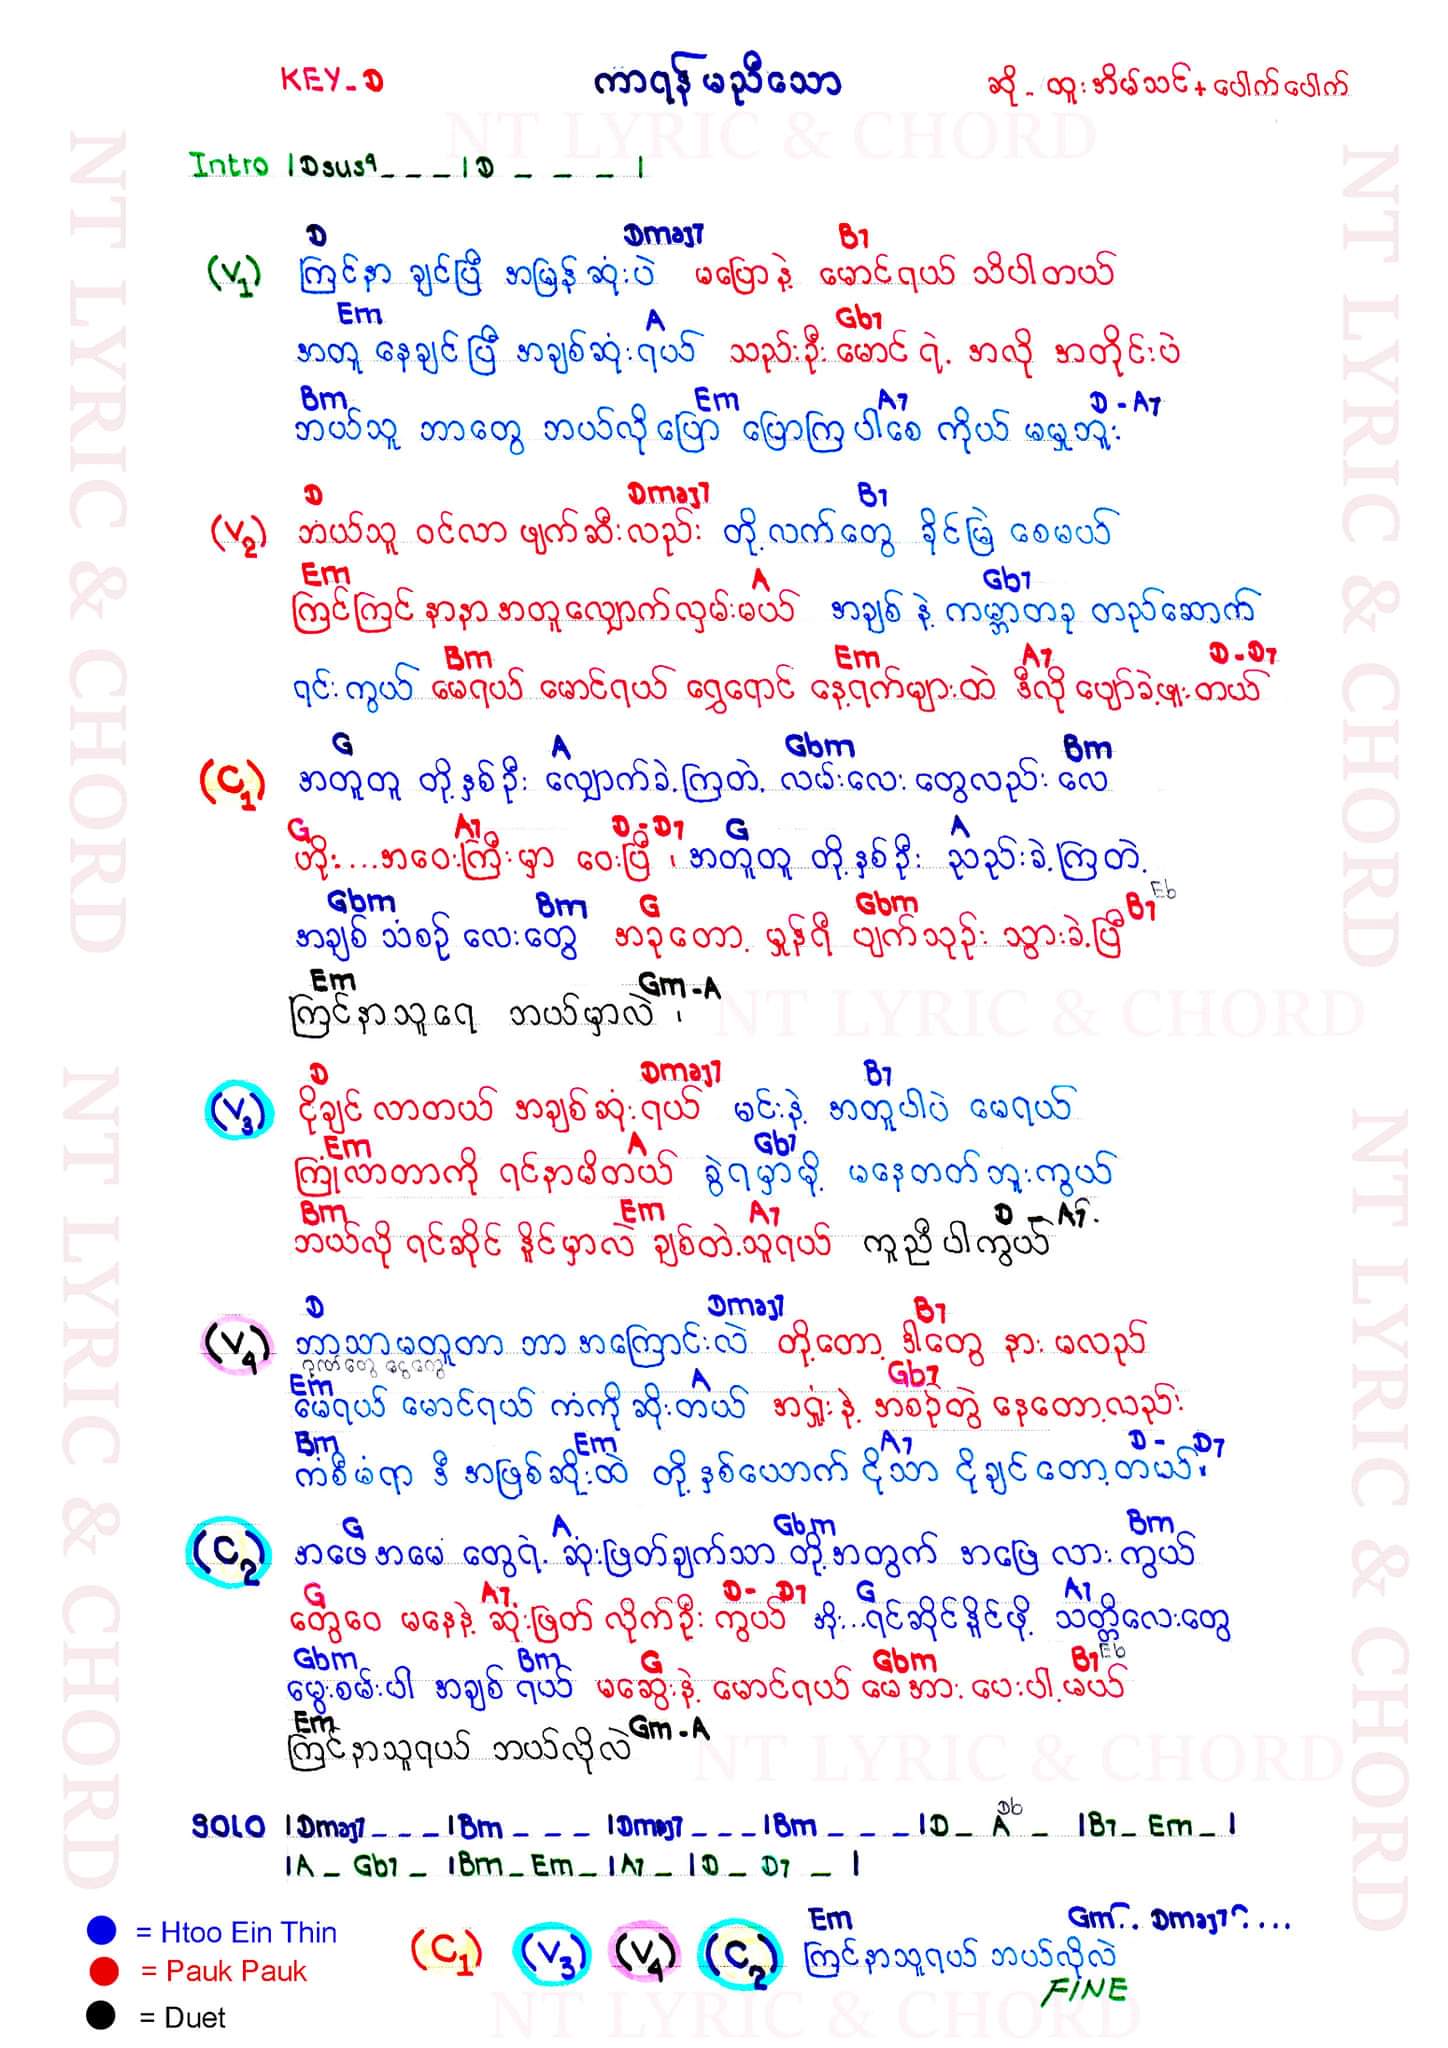 KEY - D
ကာရန် မညီသော
ဆို - ထူးအိမ်သင် + ပေါက်ပေါက်
NT LYRIC & CHORD
Intro | Dsus4 _ _ _ | D _ _ _ |
D Dmaj7 B7
(V1) ကြင်နာ ချင်ပြီ အမြန်ဆုံးပဲ မပြောနဲ့ မောင်ရယ် သိပါတယ်
Em A Gb7
အတူ နေချင်ပြီ အချစ်ဆုံးရယ် သည်းဦး မောင်ရဲ့ အလို အတိုင်းပဲ
Bm Em A7 D - A7
ဘယ်သူ ဘာတွေ ဘယ်လိုပြော ပြောကြပါစေ ကိုယ် မမှုဘူး
D Dmaj7 B7
(V2) ဘယ်သူ ဝင်လာ ဖျက်ဆီးလည်း တို့လက်တွေ ခိုင်မြဲ စေမယ်
Em A Gb7
ကြင်ကြင် နာနာ အတူလျှောက်လှမ်းမယ် အချစ် နဲ့ ကမ္ဘာတခု တည်ဆောက်
Bm Em A7 D - D7
ရင်းကွယ် မေရယ် မောင်ရယ် ရွှေရောင် နေ့ရက်များတဲ ဒီလို ပျော်ခဲ့ဖူးတယ်
G A Gbm Bm
(C1) အတူတူ တို့နှစ်ဦး လျှောက်ခဲ့ကြတဲ့ လမ်းလေး တွေလည်း လေ
G A7 D - D7 G A
ဟိုး...အဝေးကြီးမှာ ဝေးပြီ ၊ အတူတူ တို့နှစ်ဦး ညည်းခဲ့ကြတဲ့
Gbm Bm G Gbm B7 Eb
အချစ် သံစဉ် လေးတွေ အခုတော့ မှုန်ရီ ပျက်သုဉ်း သွားခဲ့ပြီ
Em Gm - A
ကြင်နာသူရေ ဘယ်မှာလဲ ၊
NT LYRIC & CHORD
D Dmaj7 B7
(V3) ငိုချင် လာတယ် အချစ်ဆုံးရယ် မင်းနဲ့ အတူပါပဲ မေရယ်
Em A Gb7
ကြုံလာတာကို ရင်နာမိတယ် ခွဲရမှာမို့ မနေတတ်ဘူးကွယ်
Bm Em A7 D - A7.
ဘယ်လို ရင်ဆိုင် နိုင်မှာလဲ ချစ်တဲ့သူရယ် ကူညီပါကွယ်
D Dmaj7 B7
(V4) ဘာသာမတူတာ ဘာ အကြောင်းလဲ တို့တော့ ဒါတွေ နား မလည်
Em A Gb7
မေရယ် မောင်ရယ် ကံကို ဆိုးတယ် အရှုံးနဲ့ အစဉ်တွဲ နေတော့လည်း
Bm Em A7 D - D7
ကံစီမံရာ ဒီ အဖြစ်ဆိုးထဲ တို့နှစ်ယောက် ငိုသာ ငိုချင်တော့တယ်
G A Gbm Bm
(C2) အဖေ အမေ တွေရဲ့ ဆုံးဖြတ်ချက်သာ တို့အတွက် အဖြေ လား ကွယ်
G A7. D - D7 G A7
တွေဝေ မနေနဲ့ ဆုံးဖြတ် လိုက်ဦး ကွယ် အိုး...ရင်ဆိုင်နိုင်ဖို့ သတ္တိလေးတွေ
Gbm Bm G Gbm B7 Eb
မွေးစမ်းပါ အချစ် ရယ် မဆွေးနဲ့ မောင်ရယ် မေအား ပေးပါ့မယ်
Em Gm - A
ကြင်နာသူရယ် ဘယ်လိုလဲ
NT LYRIC & CHORD
Db
SOLO | Dmaj7 _ _ _ | Bm _ _ _ | Dmaj7 _ _ _ | Bm _ _ _ | D _ A _ | B7 _ Em _ |
| A _ Gb7 _ | Bm _ Em _ | A7 _ | D _ D7 _ |
Em Gm.. Dmaj7....
(C1) (V3) (V4) (C2) ကြင်နာသူရယ် ဘယ်လိုလဲ
FINE
= Htoo Ein Thin
= Pauk Pauk
= Duet
NT LYRIC & CHORD
NT LYRIC & CHORD
NT LYRIC & CHORD
NT LYRIC & CHORD
NT LYRIC & CHORD